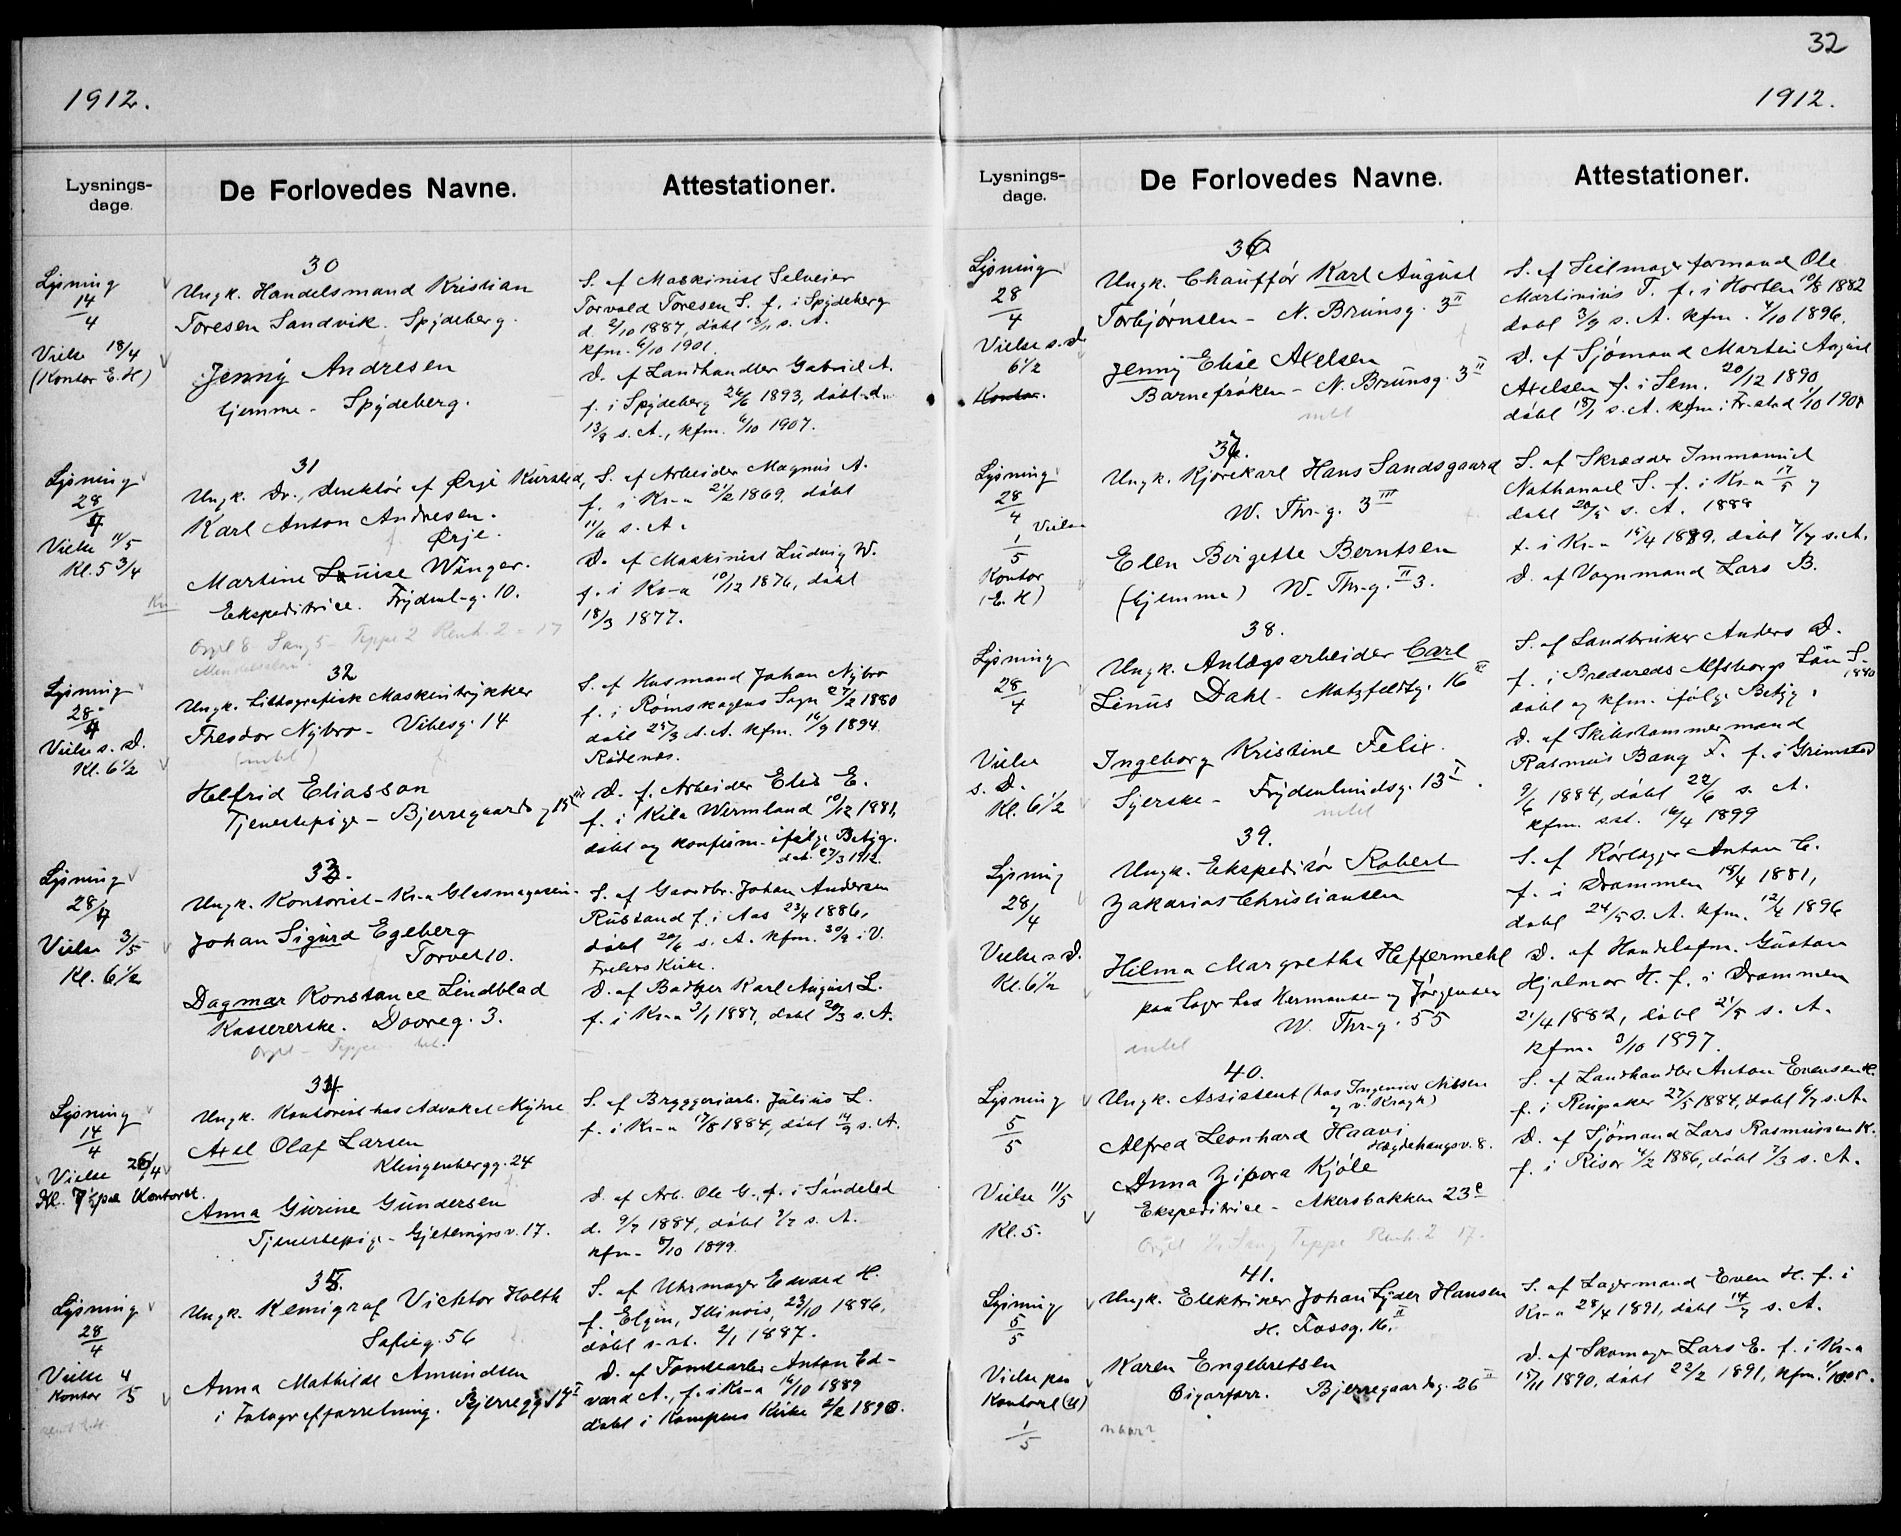 32
1912.
1912.
Lysnings-
dage.
De Forlovedes Navne.
Attestationer.
30
Lysning
14/4
Vielse 18/4
(Kontor E. H)
Ungk. Handelsmand Kristian
Toresen Sandvik. Spydeberg.
Jenny Andresen
hjemme - Spydeberg.
S. af Maskinist Selveier
Torvald Toresen S. f. i Spydeberg
d. 2/10 1887, døbt s. A.
kfm. 6/10 1901.
D. af Landhandler Gabriel A.
f. i Spydeberg 26/6 1893, døbt d.
13/8 s. A., kfm. 6/10 1907.
31
Lysning
28/4
Vielse 11/5
Kl. 5 3/4
Ungk. Dr., direktør af Ørje Kursted,
Karl Anton Andresen.
Ørje.
Martine Louise Winger.
Ekspeditrice. Frydenl-g. 10.
Orgel 8 Sang 5 - Teppe 2 Renh. 2 = 17
S. af Arbeider Magnus A.
f. i Kr-a 21/2 1869, døbt
11/6 s. A.
D. af Maskinist Ludvig W.
f. i Kr-a 10/12 1876, døbt
18/3 1877.
32
Lysning
28/4
Vielse s. D.
Kl. 6 1/2
Ungk. Lithografisk Maskintrykker
Theodor Nybro - Vibesg. 14
(intet)
Helfrid Eliasson
Tjenestepige - Bjerregaardsg 15 III
S. af Husmand Johan Nybro
f. i Rømskogens Sogn 27/2 1880
døbt 25/3 s. A. kfm. 16/9 1894
Rødenes.
D. f. Arbeider Elis E.
f. i Kila Wermland 10/12 1881,
døbt og konfirm. ifølge Betyg.
dat. 27/3 1912.
33.
Lysning
28/4
Vielse 3/5
Kl. 6 1/2
Ungk. Kontorist - Kr-a Glasmagasin
Johan Sigurd Egeberg
Torvet 10.
Dagmar Konstance Lindblad
Kassererske. Dovreg. 3.
S. af Gaardbr. Johan Andersen
Rustand f. i Aas 23/4 1886,
døbt 20/6 s. A. kfm. 30/9 i V.
Frelsers Kirke.
D. af Bødker Karl August L.
f. i Kr-a 3/1 1887, døbt 20/3 s. A.
34
Lysning
14/4
Vielse 26/4
Kl. 7 1/2 paa Kontoret.
Ungk. Kontorist hos Advokat Myhre
Axel Olaf Larsen
Klingenbergg. 24
Anna Gurine Gundersen
Tjenestepige - Gjetemyrsv. 17.
S. af Bryggeriarb. Julius L.
f. i Kr-a 17/8 1884, døbt 14/9 s. A.
D. af Arb. Ole G. f. i Søndeled
d. 9/7 1884, døbt s. A.
kfm. 8/10 1899.
35.
Lysning
28/4
Vielse 4/5
Kontor
Ungk. Kemigraf Vicktor Holth
Sofieg. 56
Anna Mathilde Amundsen
i Fotografforretning. Bjerregg 19 I
S. af Uhrmager Edvard H.
f. Elgin, Illinois, 23/10 1886,
døbt s. st. 2/1 1887.
D. af Tomtearb. Anton Ed-
vard A., f. i Kr-a 16/10 1889
døbt i Kampens Kirke 2/2 1890.
Lysnings-
dage.
De Forlovedes Navne.
Attestationer.
36
Lysning
28/4
Vielse s. d.
6 1/2
Kontor.
Ungk. Chauffør Karl August
Torbjørnsen - N. Brunsg. 3 II
Jenny Elise Axelsen
Barnefrøken - N. Brunsg. 3 II
intet
S. af Seilmagerformand Ole
Martinius T. f. i Horten 10/8 1882
døbt 3/9 s. A. kfm. 4/10 1896.
D. af Sjømand Martin August
Axelsen f. i Sem. 20/12 1890
døbt 18/1 s. A. kfm. i Fr.stad 1/10 1905
37.
Lysning
28/4
Vielse
1/5
Kontor
(E. H)
Ungk. Kjørekarl Hans Sandsgaard
W. Thr-g. 3 III
Elen Birgette Berntsen
(hjemme) W. Thr-g. II 3.
S. af Skrædder Immanuel
Nathanael S. f. i Kr-a 17/5 og
døbt 20/5 s. A. 1888
f. i Kr-a 15/4 1889, døbt 7/7 s. A.
D. af Vognmand Lars B.
38.
Lysning
28/4
Vielse
s. D.
Kl. 6 1/2
Ungk. Anlægsarbeider Carl
Linus Dahl - Motzfeldtg. 16 III
Ingeborg Kristine Felix.
Syerske - Frydenlundsg. 13 I.
intet
S. af Landbruker Anders D.
f. i Bredereds Alfsborgs Län S.
1880
døbt og kfm. ifølge Betyg.
D. af Skibstømmermand
Rasmus Bang F. f. i Grimstad
9/6 1884, døbt 22/6 s. A.
kfm. s. st. 16/4 1899
39.
Lysning
28/4
Vielse s. D.
Kl. 6 1/2
Ungk. Ekspeditør Robert
Zakarias Christiansen
Hilma Margrethe Heffermehl
paa Lager hos Hermansen og Jørgensen
W. Thr-g. 55
intet
S. af Rørlægger Anton C.
f. i Drammen 18/4 1881,
døbt 24/5 s. A. kfm. 12/4 1896
D. af Handelsfm. Gustav
Hjalmar H. f. i Drammen
21/4 1882, døbt 21/5 s. A.
kfm. 3/10 1897.
40.
Lysning
5/5
Vielse 11/5
Kl. 5.
Ungk. Assistent (hos Ingeniør Nilsen
og v. Kragh)
Alfred Leonhard Haavi
Hægdehaugsv. 8.
Anna Zipora Kjöle
Ekspeditrice - Akersbakken 23 c
Orgel Sang Teppe Renh. 2 17.
S. af Landhandler Anton Evensen H.
f. i Ringsaker 27/5 1884, døbt 6/7 s. A.
D. af Sjømand Lars Rasmussen K.
f. i Risør 4/2 1886, døbt 7/3 s. A.
41.
Lysning
5/5
Vielse paa
Kontoret (H)
1/5
Ungk. Elektriker Johan Lyder Hansen
H. Fossg. 16. II
Karen Engebretsen
Cigarforr. Bjerregaardsg. 26 II
naar?
S. af Lagermand Even H. f. i
Kr-a 28/4 1891, døbt 14/7 s. A.
D. af Skomager Lars E. f. i Kr-a
15/11 1890, døbt 22/2 1891, kfm. 1/10 05.